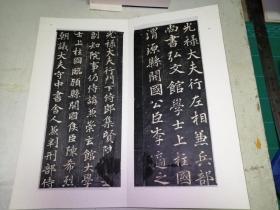 光禄大夫行左相兼兵部
尚書弘文館學士上柱國
渭源縣開國公臣李適之
光禄大夫行門下侍郎集賢院
副知院事仍侍講兼崇玄館大學
士上柱國臨潁縣開國侯臣陳希烈
朝議大夫守中書舍人兼判刑部侍